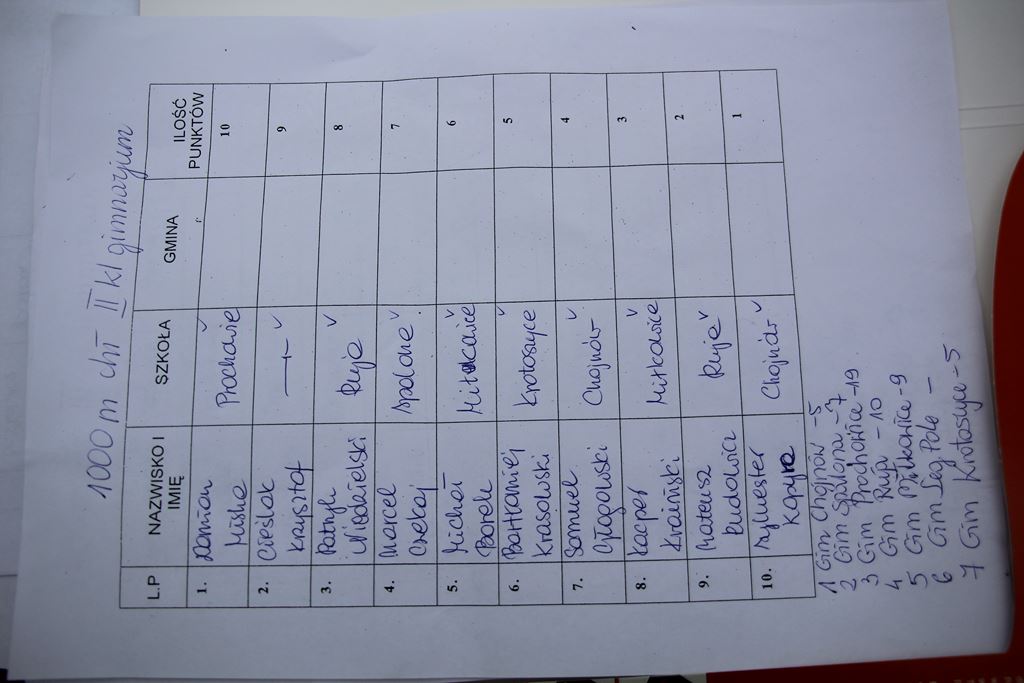 1000 m chł II kl gimnazjum
L.P NAZWISKO I IMIĘ SZKOŁA GMINA ILOŚĆ PUNKTÓW
1. Damian Prochowice 10
2. Cieślak Krysztof 9
3. Patryk Niedzielski Ruja 8
4. Marcel Czekaj Spalona 7
5. Michał Borek Miłkowice 6
6. Bartłomiej Krasowski Krotoszyce 5
7. Samuel Głogowski Chojnów 4
8. Kacper Kraiński Miłkowice 3
9. Mateusz Budowicz Ruja 2
10. Sylwester Kopyra Chojnów 1
1 Gim Chojnów - 5
2 Gim Spalona - 7
3 Gim Prochowice - 19
4 Gim Ruja - 10
5 Gim Miłkowice - 9
6 Gim Leg Pole -
7 Gim Krotoszyce - 5